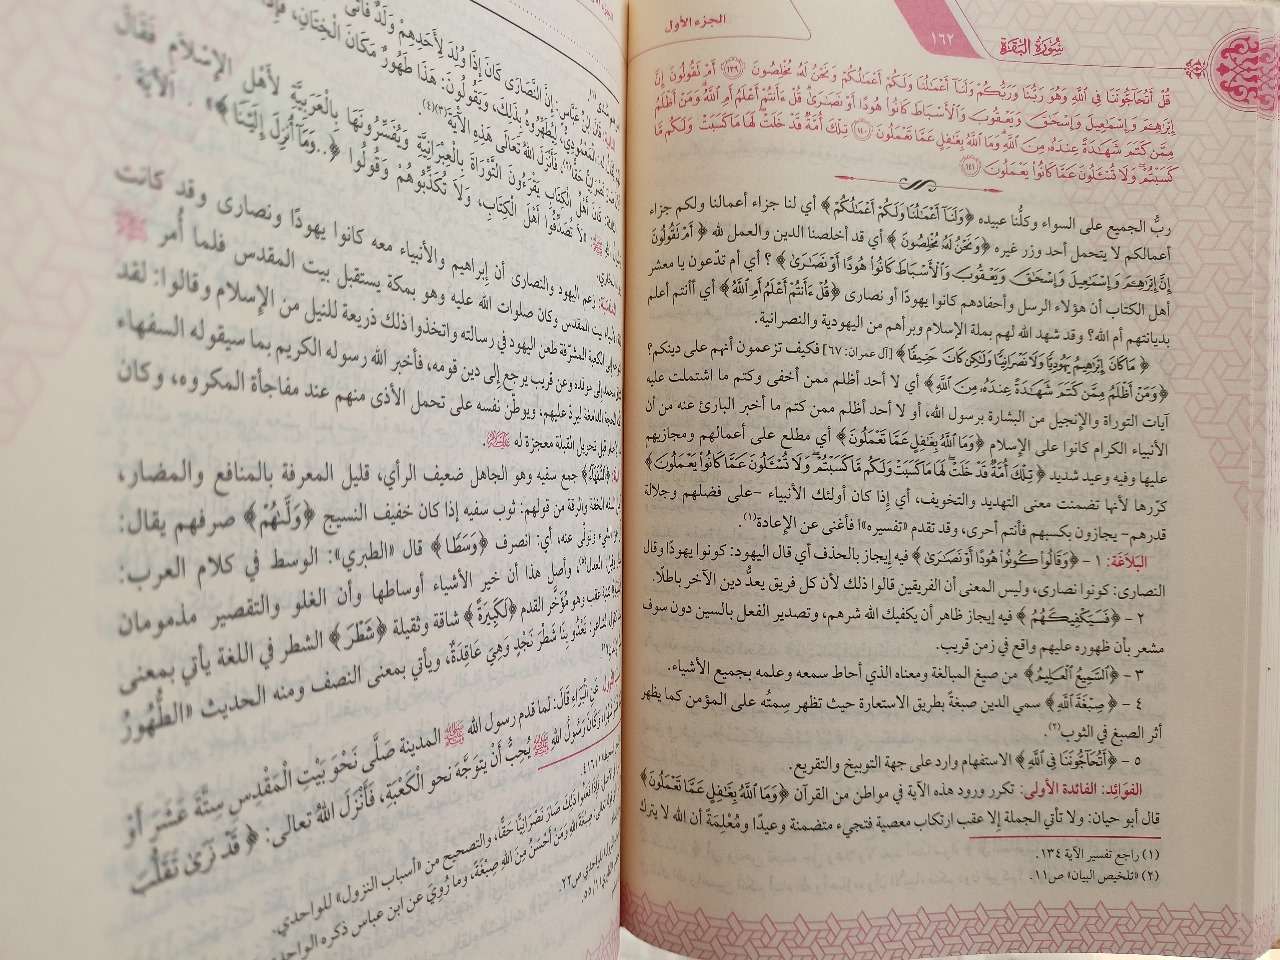 سُورَةُ البَقَرَةِ
١٦٢
الجزء الأول
قُلْ أَتُحَآجُّونَنَا فِي ٱللَّهِ وَهُوَ رَبُّنَا وَرَبُّكُمْ وَلَنَآ أَعْمَٰلُنَا وَلَكُمْ أَعْمَٰلُكُمْ وَنَحْنُ لَهُۥ مُخْلِصُونَ ﴿١٣٩﴾ أَمْ تَقُولُونَ إِنَّ
إِبْرَٰهِـۧمَ وَإِسْمَٰعِيلَ وَإِسْحَٰقَ وَيَعْقُوبَ وَٱلْأَسْبَاطَ كَانُوا۟ هُودًا أَوْ نَصَٰرَىٰ ۗ قُلْ ءَأَنتُمْ أَعْلَمُ أَمِ ٱللَّهُ ۗ وَمَنْ أَظْلَمُ
مِمَّن كَتَمَ شَهَٰدَةً عِندَهُۥ مِنَ ٱللَّهِ ۗ وَمَا ٱللَّهُ بِغَٰفِلٍ عَمَّا تَعْمَلُونَ ﴿١٤٠﴾ تِلْكَ أُمَّةٌ قَدْ خَلَتْ ۖ لَهَا مَا كَسَبَتْ وَلَكُم مَّا
كَسَبْتُمْ ۖ وَلَا تُسْـَٔلُونَ عَمَّا كَانُوا۟ يَعْمَلُونَ ﴿١٤١﴾
ربُّ الجميع على السواء وكلُّنا عبيده ﴿وَلَنَآ أَعْمَٰلُنَا وَلَكُمْ أَعْمَٰلُكُمْ﴾ أي لنا جزاء أعمالنا ولكم جزاء
أعمالكم لا يتحمل أحد وزر غيره ﴿وَنَحْنُ لَهُۥ مُخْلِصُونَ﴾ أي قد أخلصنا الدين والعمل لله ﴿أَمْ تَقُولُونَ
إِنَّ إِبْرَٰهِـۧمَ وَإِسْمَٰعِيلَ وَإِسْحَٰقَ وَيَعْقُوبَ وَٱلْأَسْبَاطَ كَانُوا۟ هُودًا أَوْ نَصَٰرَىٰ﴾؟ أي أم تدّعون يا معشر
أهل الكتاب أن هؤلاء الرسل وأحفادهم كانوا يهودًا أو نصارى ﴿قُلْ ءَأَنتُمْ أَعْلَمُ أَمِ ٱللَّهُ﴾ أي أأنتم أعلم
بديانتهم أم الله؟ وقد شهد الله لهم بملة الإسلام وبرأهم من اليهودية والنصرانية.
﴿مَا كَانَ إِبْرَٰهِيمُ يَهُودِيًّا وَلَا نَصْرَانِيًّا وَلَٰكِن كَانَ حَنِيفًا﴾ [آل عمران: ٦٧] فكيف تزعمون أنهم على دينكم؟
﴿وَمَنْ أَظْلَمُ مِمَّن كَتَمَ شَهَٰدَةً عِندَهُۥ مِنَ ٱللَّهِ﴾ أي لا أحد أظلم ممن أخفى وكتم ما اشتملت عليه
آيات التوراة والإنجيل من البشارة برسول الله، أو لا أحد أظلم ممن كتم ما أخبر البارئ عنه من أن
الأنبياء الكرام كانوا على الإسلام ﴿وَمَا ٱللَّهُ بِغَٰفِلٍ عَمَّا تَعْمَلُونَ﴾ أي مطلع على أعمالهم ومجازيهم
عليها وفيه وعيد شديد ﴿تِلْكَ أُمَّةٌ قَدْ خَلَتْ ۖ لَهَا مَا كَسَبَتْ وَلَكُم مَّا كَسَبْتُمْ ۖ وَلَا تُسْـَٔلُونَ عَمَّا كَانُوا۟ يَعْمَلُونَ﴾
كرّرها لأنها تضمنت معنى التهديد والتخويف، أي إذا كان أولئك الأنبياء -على فضلهم وجلالة
قدرهم- يجازون بكسبهم فأنتم أحرى، وقد تقدم «تفسيره»ا فأغنى عن الإعادة(١).
البَلَاغَة: ١ - ﴿وَقَالُوا۟ كُونُوا۟ هُودًا أَوْ نَصَٰرَىٰ﴾ فيه إيجاز بالحذف أي قال اليهود: كونوا يهودًا وقال
النصارى: كونوا نصارى، وليس المعنى أن الفريقين قالوا ذلك لأن كل فريق يعدُّ دين الآخر باطلًا.
٢ - ﴿فَسَيَكْفِيكَهُمُ﴾ فيه إيجاز ظاهر أن يكفيك الله شرهم، وتصدير الفعل بالسين دون سوف
مشعر بأن ظهوره عليهم واقع في زمن قريب.
٣ - ﴿ٱلسَّمِيعُ ٱلْعَلِيمُ﴾ من صيغ المبالغة ومعناه الذي أحاط سمعه وعلمه بجميع الأشياء.
٤ - ﴿صِبْغَةَ ٱللَّهِ﴾ سمي الدين صبغةً بطريق الاستعارة حيث تظهر سِمتُه على المؤمن كما يظهر
أثر الصبغ في الثوب(٢).
٥ - ﴿أَتُحَآجُّونَنَا فِي ٱللَّهِ﴾ الاستفهام وارد على جهة التوبيخ والتقريع.
الفَوَائِد: الفائدة الأولى: تكرر ورود هذه الآية في مواطن من القرآن ﴿وَمَا ٱللَّهُ بِغَٰفِلٍ عَمَّا تَعْمَلُونَ﴾
قال أبو حيان: ولا تأتي الجملة إلا عقب ارتكاب معصية فتجيء متضمنة وعيدًا ومُعْلِمَةً أن الله لا يترك
(١) راجع تفسير الآية ١٣٤.
(٢) «تلخيص البيان» ص١١.
قَالَ ابْنُ عَبَّاسٍ: إِنَّ النَّصَارَى كَانَ إِذَا وُلِدَ لِأَحَدِهِمْ وَلَدٌ فَأَتَى
لِيُطَهِّرُوهُ بِذَلِكَ، وَيَقُولُونَ: هَذَا طَهُورٌ مَكَانَ الْخِتَانِ، فَإِذَا
فَأَنْزَلَ اللهُ تَعَالَى هَذِهِ الْآيَةَ(٣)(٤)
كَانَ أَهْلُ الكِتَابِ يَقْرَءُونَ التَّوْرَاةَ بِالْعِبْرَانِيَّةِ وَيُفَسِّرُونَهَا بِالْعَرَبِيَّةِ لِأَهْلِ الإِسْلَامِ فَقَالَ
«لَا تُصَدِّقُوا أَهْلَ الْكِتَابِ، وَلَا تُكَذِّبُوهُمْ وَقُولُوا ﴿..وَمَآ أُنزِلَ إِلَيْنَا﴾» . الْآيَةَ .
زعم اليهود والنصارى أن إبراهيم والأنبياء معه كانوا يهودًا ونصارى وقد كانت
بيت المقدس وكان صلوات الله عليه وهو بمكة يستقبل بيت المقدس فلما أُمر ﷺ
إلى الكعبة المشرّفة طعن اليهود في رسالته واتخذوا ذلك ذريعة للنيل من الإسلام وقالوا: لقد
إلى مولده وعن قريب يرجع إلى دين قومه، فأخبر الله رسوله الكريم بما سيقوله السفهاء
الحجة الدامغة ليرد عليهم، ويوطّن نفسه على تحمل الأذى منهم عند مفاجأة المكروه، وكان
قبل تحويل القبلة معجزة له ﷺ.
﴿ٱلسُّفَهَآءُ﴾ جمع سفيه وهو الجاهل ضعيف الرأي، قليل المعرفة بالمنافع والمضار،
الخفة والرقة من قولهم: ثوب سفيه إذا كان خفيف النسيج ﴿وَلَّىٰهُمْ﴾ صرفهم يقال:
وتولّى عنه، أي: انصرف ﴿وَسَطًا﴾ قال «الطبري»: الوسط في كلام العرب:
وأصل هذا أن خير الأشياء أوساطها وأن الغلو والتقصير مذمومان
عقب وهو مُؤخَّر القدم ﴿لَكَبِيرَةً﴾ شاقة وثقيلة ﴿شَطْرَ﴾ الشطر في اللغة يأتي بمعنى
تَعْدُو بِنَا شَطْرَ نَجْدٍ وَهِيَ عَاقِدَةٌ، ويأتي بمعنى النصف ومنه الحديث «الطُّهُورُ
عَنِ الْبَرَاءِ قَالَ: لما قدم رسول الله ﷺ المدينة صَلَّى نَحْوَ بَيْتِ الْمَقْدِسِ سِتَّةَ عَشَرَ أوْ
وَكَانَ رَسُولُ الله ﷺ يُحِبُّ أَنْ يَتَوَجَّهَ نحو الْكَعْبَةِ، فَأَنْزَلَ اللهُ تعالى: ﴿ قَدْ نَرَىٰ تَقَلُّبَ
صَارَ نَصْرَانِيًّا حَقًّا، والتصحيح من «أسباب النزول» للواحدي.
وَمَنْ أَحْسَنُ مِنَ اللهِ صِبْغَةً، وما رُوِيَ عن ابن عباس ذكره الواحدي